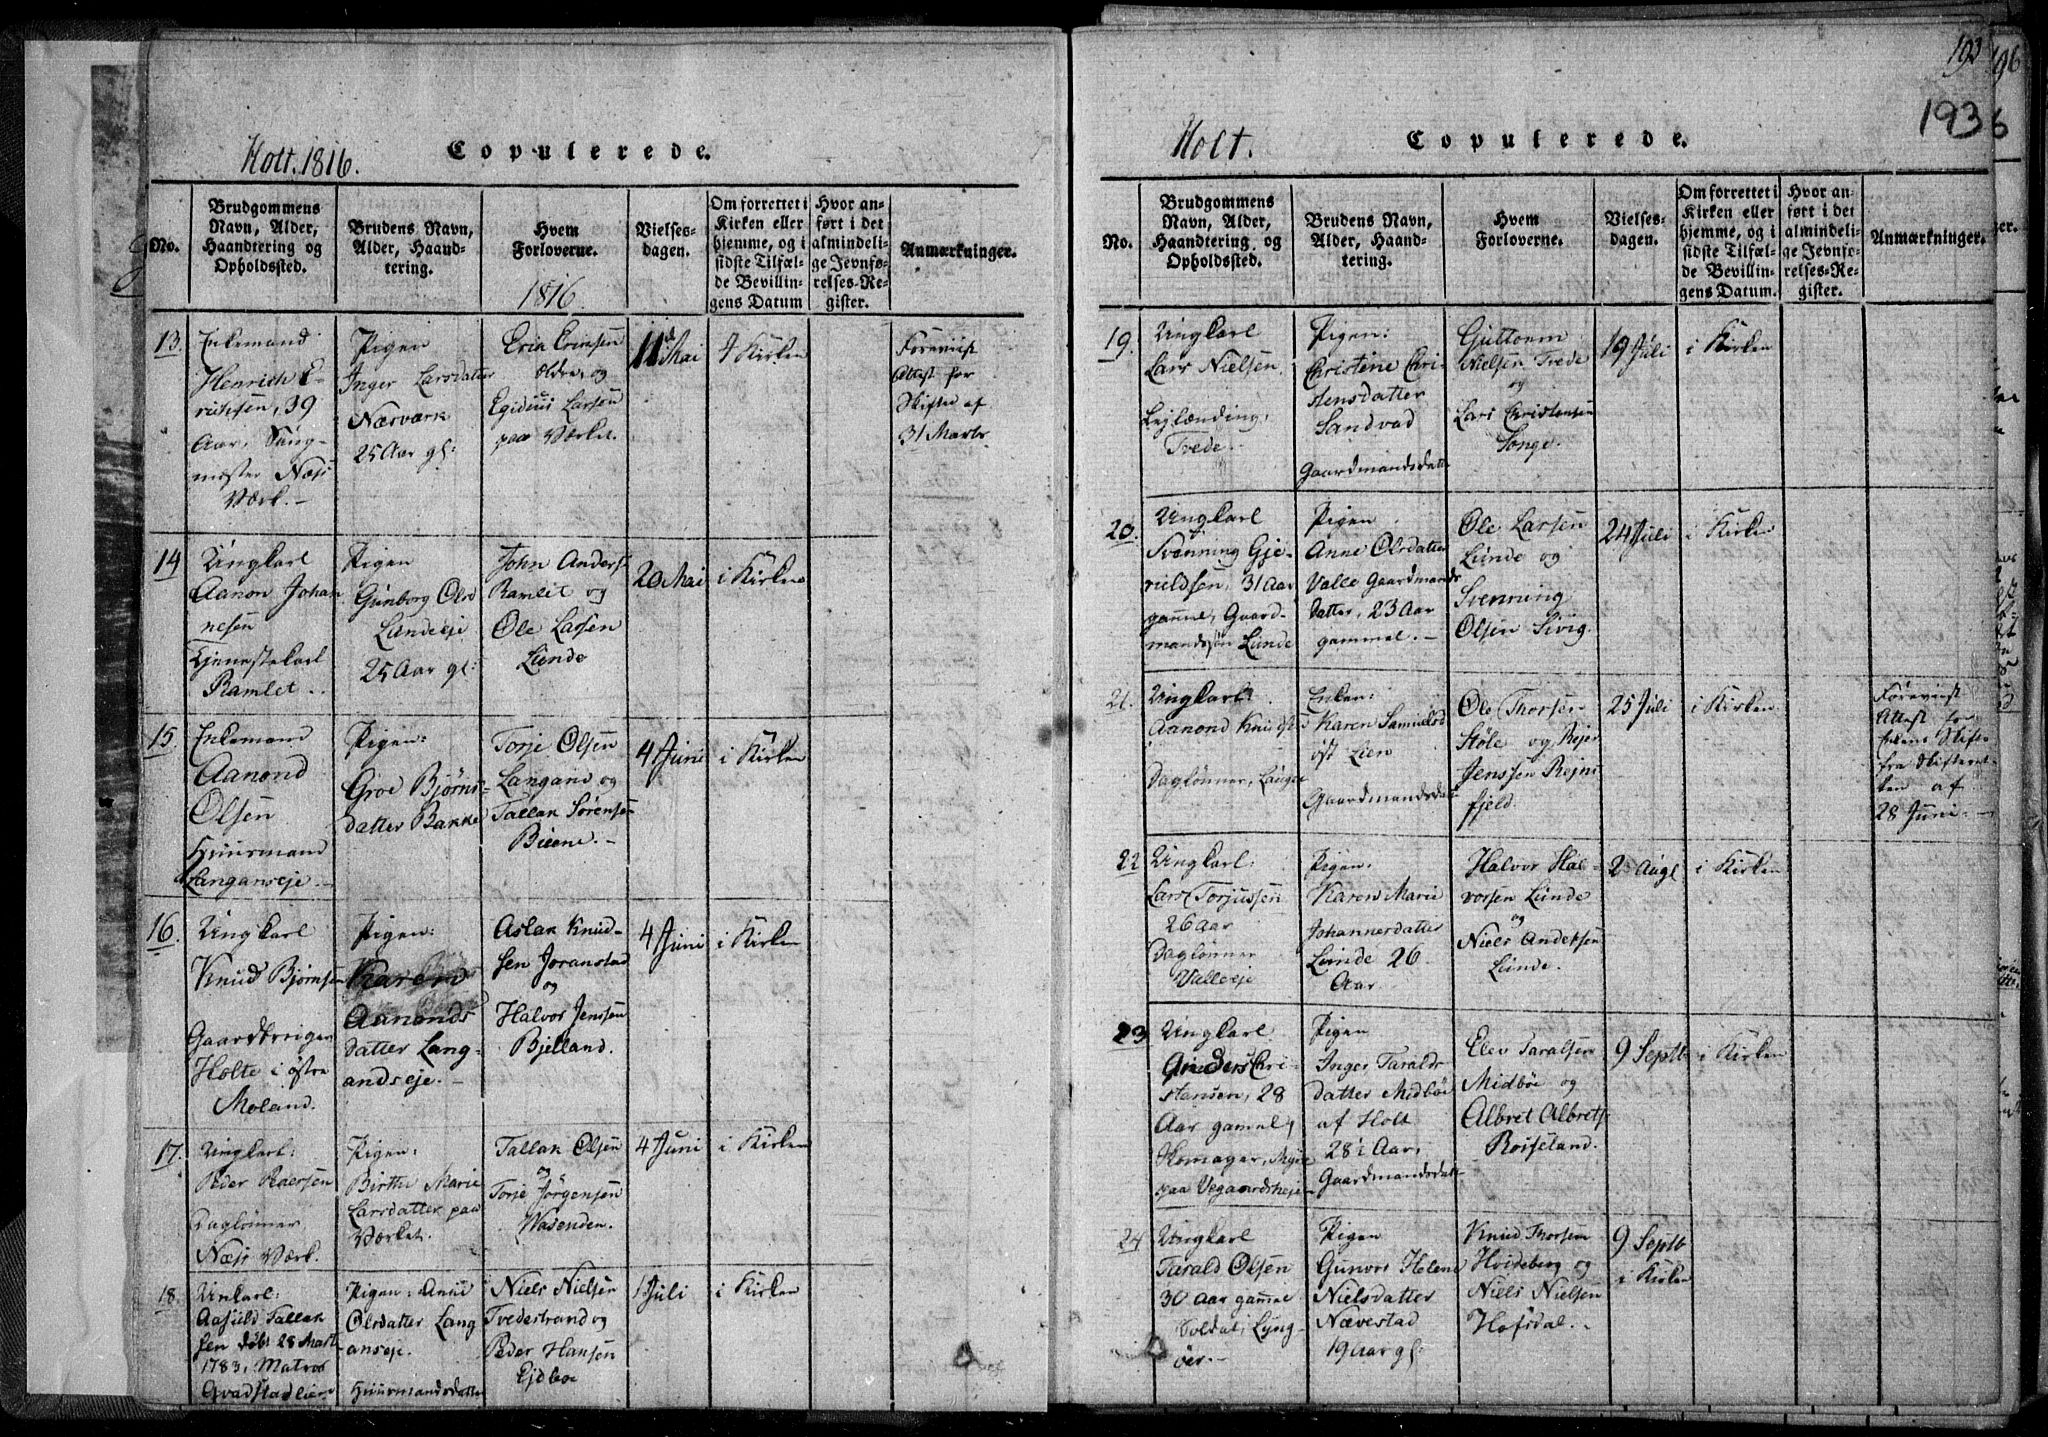 Holt. 1816.
Copulerede.
No.
Brudgommens
Navn, Alder,
Haandtering og
Opholdssted.
Brudens Navn,
Alder, Haand-
tering.
Hvem
Forloverne.
1816
Vielses-
dagen.
Om forrettet i
Kirken eller
hjemme, og i
sidste Tilfæl-
de Bevillin-
gens Datum
Hvor an-
ført i det
almindeli-
ge Jevnfø-
relses-Re-
gister.
Anmærkninger.
13.
Enkemand
Henrich E-
richsen, 39
Aar,
mester Næss
Værk. -
Pigen
Inger Larsdatter
Nærvark
25 Aar gl:
Erik Ericsen
ældre, og
Egidius Larsen
paa Værket.
11 Mai
I Kirken
Foreviist
Attest for
Skifte af
31 Marts
14
Ungkarl
Aanon Johan
nesen
Tjenestekarl
Ramlet. .
Pigen
Gunborg Olsd
Landeeje
25 Aar gl:
John Anders:
Ramlet og
Ole Larsen
Lunde
20 Mai
i Kirken
15.
Enkemand
Aanond
Olsen
Huusmand
Langanseje. -
Pigen:
Groe Bjørns-
datter Bakke
Torje Olsen
Langand og
Tallak Sørensen
Biene. -
4 Juni
i Kirken
16.
Ungkarl
Knud Bjørnsen
Gaardbruger
Holte i østre
Moland.
Pigen:
Karen
Aanonds
datter Lang-
andseje. -
Aslak Knud-
sen Joranstad
og
Halvor Jenssen
Bjelland.
4 Juni
i Kirken
17.
Ungkarl:
Peder Pedersen
Daglønner
Næss Værk.
Pigen:
Birthe Marie
Larsdatter paa
Værket.
Tallak Olsen
og
Torje Jörgensen
Wasenden.
4 Juni
i Kirken
18.
Unkarl:
Aasuld Tallak
sen døbt 28 Mart
1783, Matros
Pigen: Anne
Olsdatter Lang
anseje.
Huusmandsdatter
Niels Nielsen
Tvedestrand og
Peder Hansen
Ejdboe
1 Juli
i Kirken
193
193
Holt.
Copulerede.
No.
Brudgommens
Navn, Alder,
Haandtering og
Opholdssted.
Brudens Navn,
Alder, Haand-
tering.
Hvem
Forloverne.
Vielses-
dagen.
Om forrettet i
Kirken eller
hjemme, og i
sidste Tilfæl-
de Bevillin-
gens Datum.
Hvor an-
ført i det
almindeli-
ge Jevnfø-
relses-Re-
gister.
Anmærkninger.
19.
Ungkarl
Lars Nielsen
Lejlænding,
Tvede. -
Pigen:
Christine Chri-
stensdatter
Sandvad
Gaardmandsdatt
Guttorm
Nielsen Tvede
og
Lars Christensen
Songe.
19 Juli
i Kirken
20.
Ungkarl
Svenning Gje-
ruldsen, 31 Aar
gamel, Gaard-
mandssøn Lunde
Pigen.
Anne Olsdatter
Valle Gaardmands
datter, 23 Aar
gammel. -
Ole Larsen
Lunde og
Svenning
Olsen Sivig.
24 Juli
i Kirken
21.
Ungkarl:
Aanond Knuds
Daglønner, Lauget
Enken:
Karen Samuelsd
øst Lien
Gaardmandsdatt
Ole Thorsen
Støle og Rejer
Jenssen Rejns
fjeld.
25 Juli
i Kirken
Foreviist
Attest for
Enkens Skifte
fra Skifteret-
ten af
28 Juni. -
22
Ungkarl:
Lars Torjussen
26 Aar
Daglønner
Valleeje
Pigen.
Karen Marie
Johannesdatter
Lunde 26
Aar.
Halvor Hal-
vorsen Lunde
og
Niels Andersen
Lunde.
2 Augl
i Kirken
23
Ungkarl
Anders Chri-
stiansen, 28
Aar gamel,
Skomager, Myre
paa Vegaardsheje
Pigen
Inger Taralds
datter Midbøe
af Holt
28 i Aar,
Gaardmandsdatt
Elev Taralsen
Midbøe og
Albret Albrets
Roiseland.
9 Septb
i Kirken
24
Ungkarl
Tarald Olsen
30 Aar gamel
Soldat, Lyng-
öer. -
Pigen
Gunvor Helene
Nielsdatter
Nævestad
19 Aar gl:
Knud Thorsen
Hvideberg og
Niels Nielsen
Hofsdal. -
9 Septb
i Kirken